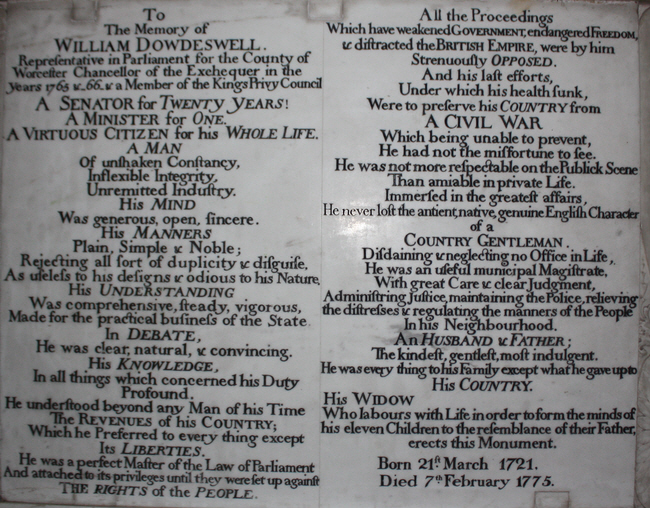 To
The Memory of
WILLIAM DOWDESWELL.
Repreſentative in Parliament for the County of
Worceſter Chancellor of the Exchequer in the
Years 1765 & 66. & a Member of the Kings Privy Council
A SENATOR for TWENTY YEARS!
A MINISTER for ONE.
A VIRTUOUS CITIZEN for his WHOLE LIFE.
A MAN
Of unſhaken Conſtancy,
Inflexible Integrity,
Unremitted Induſtry.
His MIND
Was generous, open, ſincere.
His MANNERS
Plain, Simple & Noble;
Rejecting all ſort of duplicity & diſguiſe,
As uſeleſs to his deſigns & odious to his Nature,
His UNDERSTANDING
Was comprehenſive, ſteady, vigorous,
Made for the practical buſineſs of the State.
In DEBATE,
He was clear, natural, & convincing.
His KNOWLEDGE,
In all things which concerned his Duty
Profound.
He underſtood beyond any Man of his Time
The REVENUES of his COUNTRY;
Which he Preferred to every thing except
Its LIBERTIES.
He was a perfect Maſter of the Law of Parliament
And attached to its privileges until they were ſet up againſt
THE RIGHTS of the PEOPLE.
All the Proceedings
Which have weakened GOVERNMENT, endangered FREEDOM,
& diſtracted the BRITISH EMPIRE, were by him
Strenuouſly OPPOSED.
And his laſt efforts,
Under which his health ſunk,
Were to preſerve his COUNTRY from
A CIVIL WAR
Which being unable to prevent,
He had not the miſfortune to ſee.
He was not more reſpectable on the Publick Scene
Than amiable in private Life.
Immerſed in the greateſt affairs,
He never loſt the antient, native, genuine Engliſh Character
of a
COUNTRY GENTLEMAN.
Diſdaining & neglecting no Office in Life,
He was an uſeful municipal Magiſtrate,
With great Care & clear Judgment,
Adminiſtring Juſtice, maintaining the Police, relieving
the diſtreſſes & regulating the manners of the People
In his Neighbourhood.
An HUSBAND & FATHER;
The kindeſt, gentleſt, moſt indulgent.
He was every thing to his Family except what he gave up to
His COUNTRY.
His WIDOW
Who labours with Life in order to form the minds of
his eleven Children to the reſemblance of their Father,
erects this Monument.
Born 21ſt. March 1721.
Died 7th February 1775.